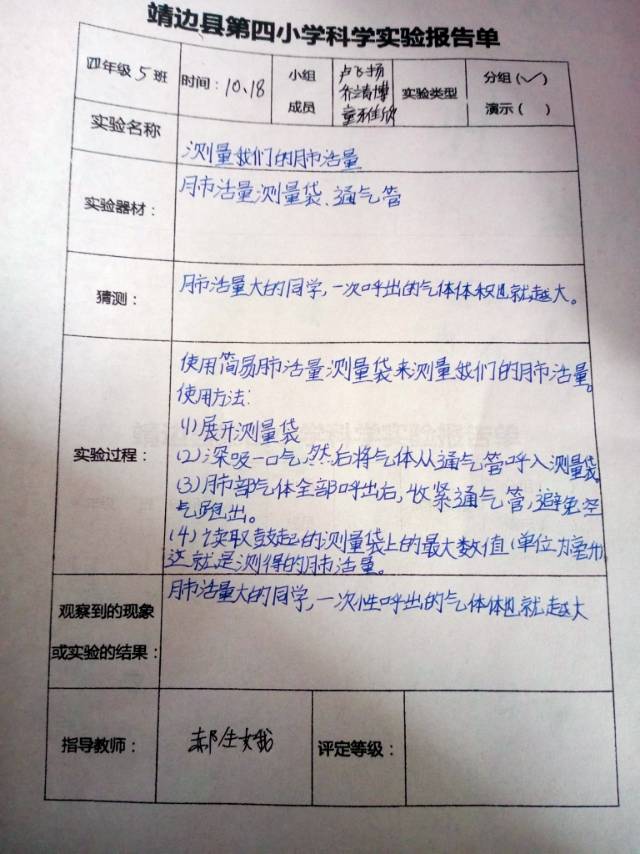 靖边县第四小学科学实验报告单
四年级5班 时间：10.18 小组成员 卢飞扬 实验类型 分组（✓）
演示（ ）
实验名称 测量我们的肺活量
实验器材： 肺活量测量袋、通气管
猜测： 肺活量大的同学，一次呼出的气体体积也就越大。
实验过程： 使用简易肺活量测量袋来测量我们的肺活量。
使用方法：
(1)展开测量袋
(2)深吸一口气，然后将气体从通气管呼入测量袋
(3)肺部气体全部呼出后，收紧通气管，避免空
气跑出。
(4)读取鼓起的测量袋上的最大数值（单位为毫升）
这就是测得的肺活量。
观察到的现象 肺活量大的同学，一次性呼出的气体体也就越大
或实验的结果：
指导教师： 评定等级：